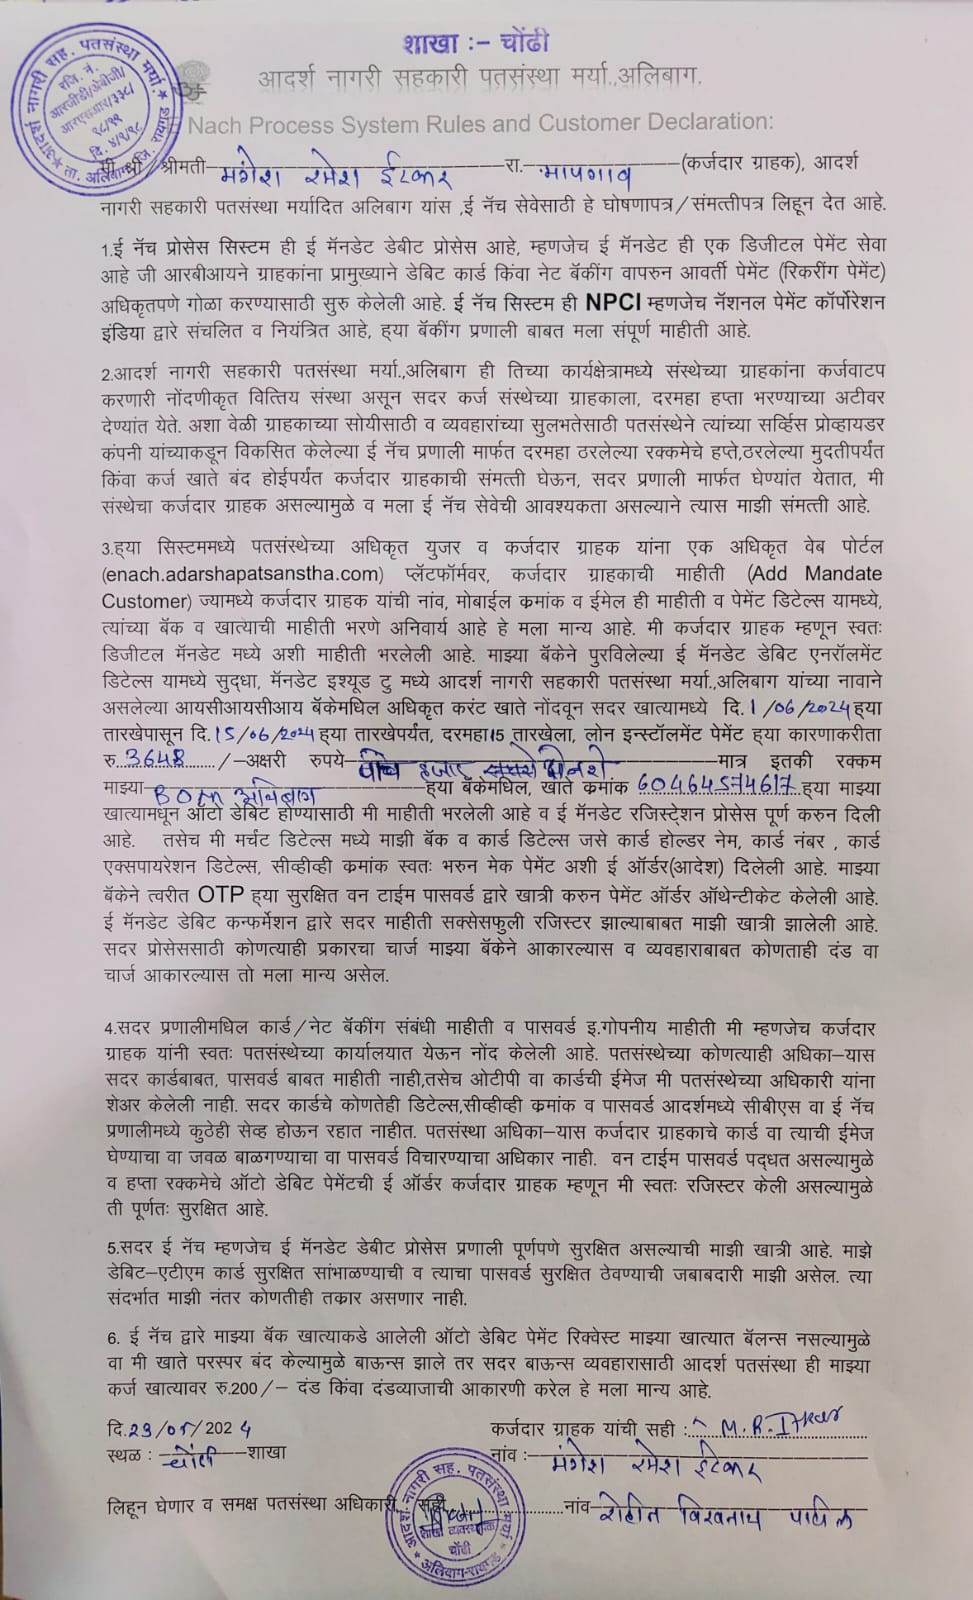 शाखा :- चोंढी
आदर्श नागरी सहकारी पतसंस्था मर्या.,अलिबाग.
Nach Process System Rules and Customer Declaration:
मी श्री/श्रीमती मंगेश रमेश ईटकर रा. मापगाव (कर्जदार ग्राहक), आदर्श
नागरी सहकारी पतसंस्था मर्यादित अलिबाग यांस ,ई नॅच सेवेसाठी हे घोषणापत्र/संमत्तीपत्र लिहून देत आहे.
1.ई नॅच प्रोसेस सिस्टम ही ई मॅनडेट डेबीट प्रोसेस आहे, म्हणजेच ई मॅनडेट ही एक डिजीटल पेमेंट सेवा
आहे जी आरबीआयने ग्राहकांना प्रामुख्याने डेबिट कार्ड किंवा नेट बॅकींग वापरुन आवर्ती पेमेंट (रिकरींग पेमेंट)
अधिकृतपणे गोळा करण्यासाठी सुरु केलेली आहे. ई नॅच सिस्टम ही NPCI म्हणजेच नॅशनल पेमेंट कॉर्पोरेशन
इंडिया द्वारे संचलित व नियंत्रित आहे, ह्या बॅकींग प्रणाली बाबत मला संपूर्ण माहीती आहे.
2.आदर्श नागरी सहकारी पतसंस्था मर्या.,अलिबाग ही तिच्या कार्यक्षेत्रामध्ये संस्थेच्या ग्राहकांना कर्जवाटप
करणारी नोंदणीकृत वित्तिय संस्था असून सदर कर्ज संस्थेच्या ग्राहकाला, दरमहा हप्ता भरण्याच्या अटीवर
देण्यांत येते. अशा वेळी ग्राहकाच्या सोयीसाठी व व्यवहारांच्या सुलभतेसाठी पतसंस्थेने त्यांच्या सर्व्हिस प्रोव्हायडर
कंपनी यांच्याकडून विकसित केलेल्या ई नॅच प्रणाली मार्फत दरमहा ठरलेल्या रक्कमेचे हप्ते,ठरलेल्या मुदतीपर्यंत
किंवा कर्ज खाते बंद होईपर्यंत कर्जदार ग्राहकाची संमत्ती घेऊन, सदर प्रणाली मार्फत घेण्यांत येतात, मी
संस्थेचा कर्जदार ग्राहक असल्यामुळे व मला ई नॅच सेवेची आवश्यकता असल्याने त्यास माझी संमत्ती आहे.
3.ह्या सिस्टममध्ये पतसंस्थेच्या अधिकृत युजर व कर्जदार ग्राहक यांना एक अधिकृत वेब पोर्टल
(enach.adarshapatsanstha.com) प्लॅटफॉर्मवर, कर्जदार ग्राहकाची माहीती (Add Mandate
Customer) ज्यामध्ये कर्जदार ग्राहक यांची नांव, मोबाईल क्रमांक व ईमेल ही माहीती व पेमेंट डिटेल्स यामध्ये,
त्यांच्या बॅक व खात्याची माहीती भरणे अनिवार्य आहे हे मला मान्य आहे. मी कर्जदार ग्राहक म्हणून स्वतः
डिजीटल मॅनडेट मध्ये अशी माहीती भरलेली आहे. माझ्या बॅकेने पुरविलेल्या ई मॅनडेट डेबिट एनरॉलमेंट
डिटेल्स यामध्ये सुद्धा, मॅनडेट इश्यूड टु मध्ये आदर्श नागरी सहकारी पतसंस्था मर्या.,अलिबाग यांच्या नावाने
असलेल्या आयसीआयसीआय बॅकेमधिल अधिकृत करंट खाते नोंदवून सदर खात्यामध्ये दि.1/06/2024 ह्या
तारखेपासून दि.15/06/2024 ह्या तारखेपर्यंत, दरमहा 15 तारखेला, लोन इन्स्टॉलमेंट पेमेंट ह्या कारणाकरीता
रु 3648 /-अक्षरी रुपये हजार मात्र इतकी रक्कम
माझ्या BOM अलिबाग ह्या बॅकेमधिल, खाते क्रमांक 60464574617 ह्या माझ्या
खात्यामधून ऑटो डेबिट होण्यासाठी मी माहीती भरलेली आहे व ई मॅनडेट रजिस्ट्रेशन प्रोसेस पूर्ण करुन दिली
आहे. तसेच मी मर्चंट डिटेल्स मध्ये माझी बॅक व कार्ड डिटेल्स जसे कार्ड होल्डर नेम, कार्ड नंबर , कार्ड
एक्सपायरेशन डिटेल्स, सीव्हीव्ही क्रमांक स्वतः भरुन मेक पेमेंट अशी ई ऑर्डर(आदेश) दिलेली आहे. माझ्या
बॅकेने त्वरीत OTP ह्या सुरक्षित वन टाईम पासवर्ड द्वारे खात्री करुन पेमेंट ऑर्डर ऑथेन्टीकेट केलेली आहे.
ई मॅनडेट डेबिट कन्फर्मेशन द्वारे सदर माहीती सक्सेसफुली रजिस्टर झाल्याबाबत माझी खात्री झालेली आहे.
सदर प्रोसेससाठी कोणत्याही प्रकारचा चार्ज माझ्या बॅकेने आकारल्यास व व्यवहाराबाबत कोणताही दंड वा
चार्ज आकारल्यास तो मला मान्य असेल.
4.सदर प्रणालीमधिल कार्ड/नेट बॅकींग संबंधी माहीती व पासवर्ड इ.गोपनीय माहीती मी म्हणजेच कर्जदार
ग्राहक यांनी स्वतः पतसंस्थेच्या कार्यालयात येऊन नोंद केलेली आहे. पतसंस्थेच्या कोणत्याही अधिका-यास
सदर कार्डबाबत, पासवर्ड बाबत माहीती नाही,तसेच ओटीपी वा कार्डची ईमेज मी पतसंस्थेच्या अधिकारी यांना
शेअर केलेली नाही. सदर कार्डचे कोणतेही डिटेल्स,सीव्हीव्ही क्रमांक व पासवर्ड आदर्शमध्ये सीबीएस वा ई नॅच
प्रणालीमध्ये कुठेही सेव्ह होऊन रहात नाहीत. पतसंस्था अधिका-यास कर्जदार ग्राहकाचे कार्ड वा त्याची ईमेज
घेण्याचा वा जवळ बाळगण्याचा वा पासवर्ड विचारण्याचा अधिकार नाही. वन टाईम पासवर्ड पद्धत असल्यामुळे
व हप्ता रक्कमेचे ऑटो डेबिट पेमेंटची ई ऑर्डर कर्जदार ग्राहक म्हणून मी स्वतः रजिस्टर केली असल्यामुळे
ती पूर्णतः सुरक्षित आहे.
5.सदर ई नॅच म्हणजेच ई मॅनडेट डेबीट प्रोसेस प्रणाली पूर्णपणे सुरक्षित असल्याची माझी खात्री आहे. माझे
डेबिट-एटीएम कार्ड सुरक्षित सांभाळण्याची व त्याचा पासवर्ड सुरक्षित ठेवण्याची जबाबदारी माझी असेल. त्या
संदर्भात माझी नंतर कोणतीही तक्रार असणार नाही.
6. ई नॅच द्वारे माझ्या बॅक खात्याकडे आलेली ऑटो डेबिट पेमेंट रिक्वेस्ट माझ्या खात्यात बॅलन्स नसल्यामुळे
वा मी खाते परस्पर बंद केल्यामुळे बाऊन्स झाले तर सदर बाऊन्स व्यवहारासाठी आदर्श पतसंस्था ही माझ्या
कर्ज खात्यावर रु.200/- दंड किंवा दंडव्याजाची आकारणी करेल हे मला मान्य आहे.
दि.29/05/2024 कर्जदार ग्राहक यांची सही : M.R.Itkar
स्थळ : चोंढी शाखा नांव : मंगेश रमेश ईटकर
लिहून घेणार व समक्ष पतसंस्था अधिकारी, सही नांव रोहीत विश्वनाथ पाटील